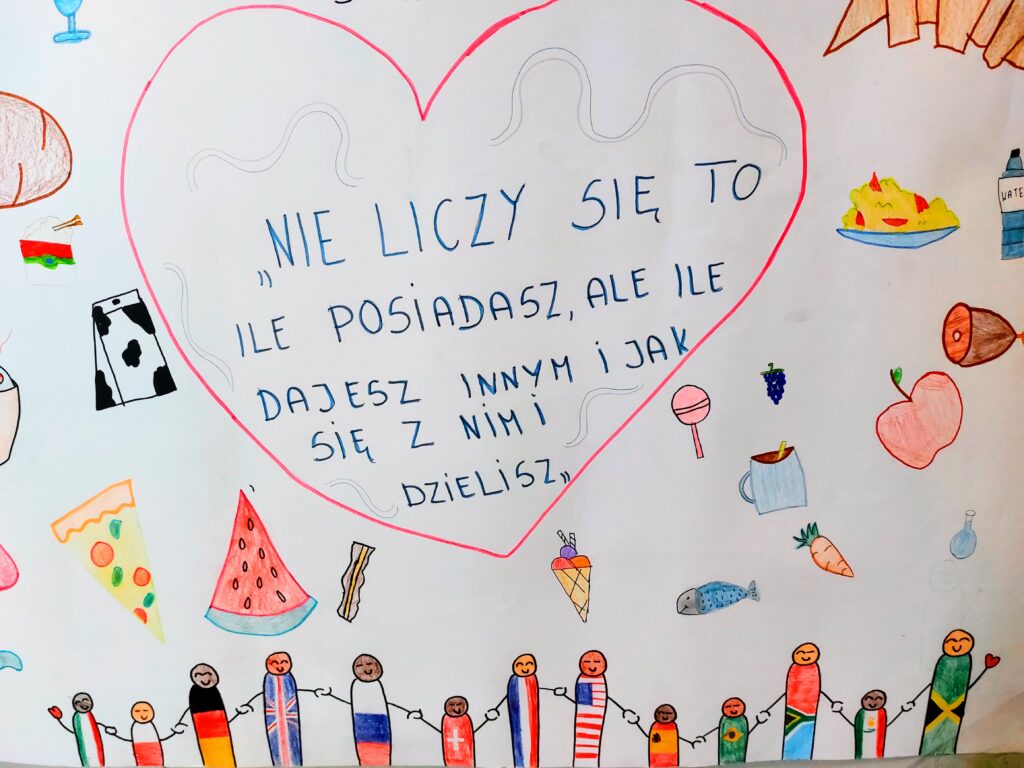 „NIE LICZY SIĘ TO
ILE POSIADASZ, ALE ILE
DAJESZ INNYM I JAK
SIĘ Z NIMI
DZIELISZ„
WATE